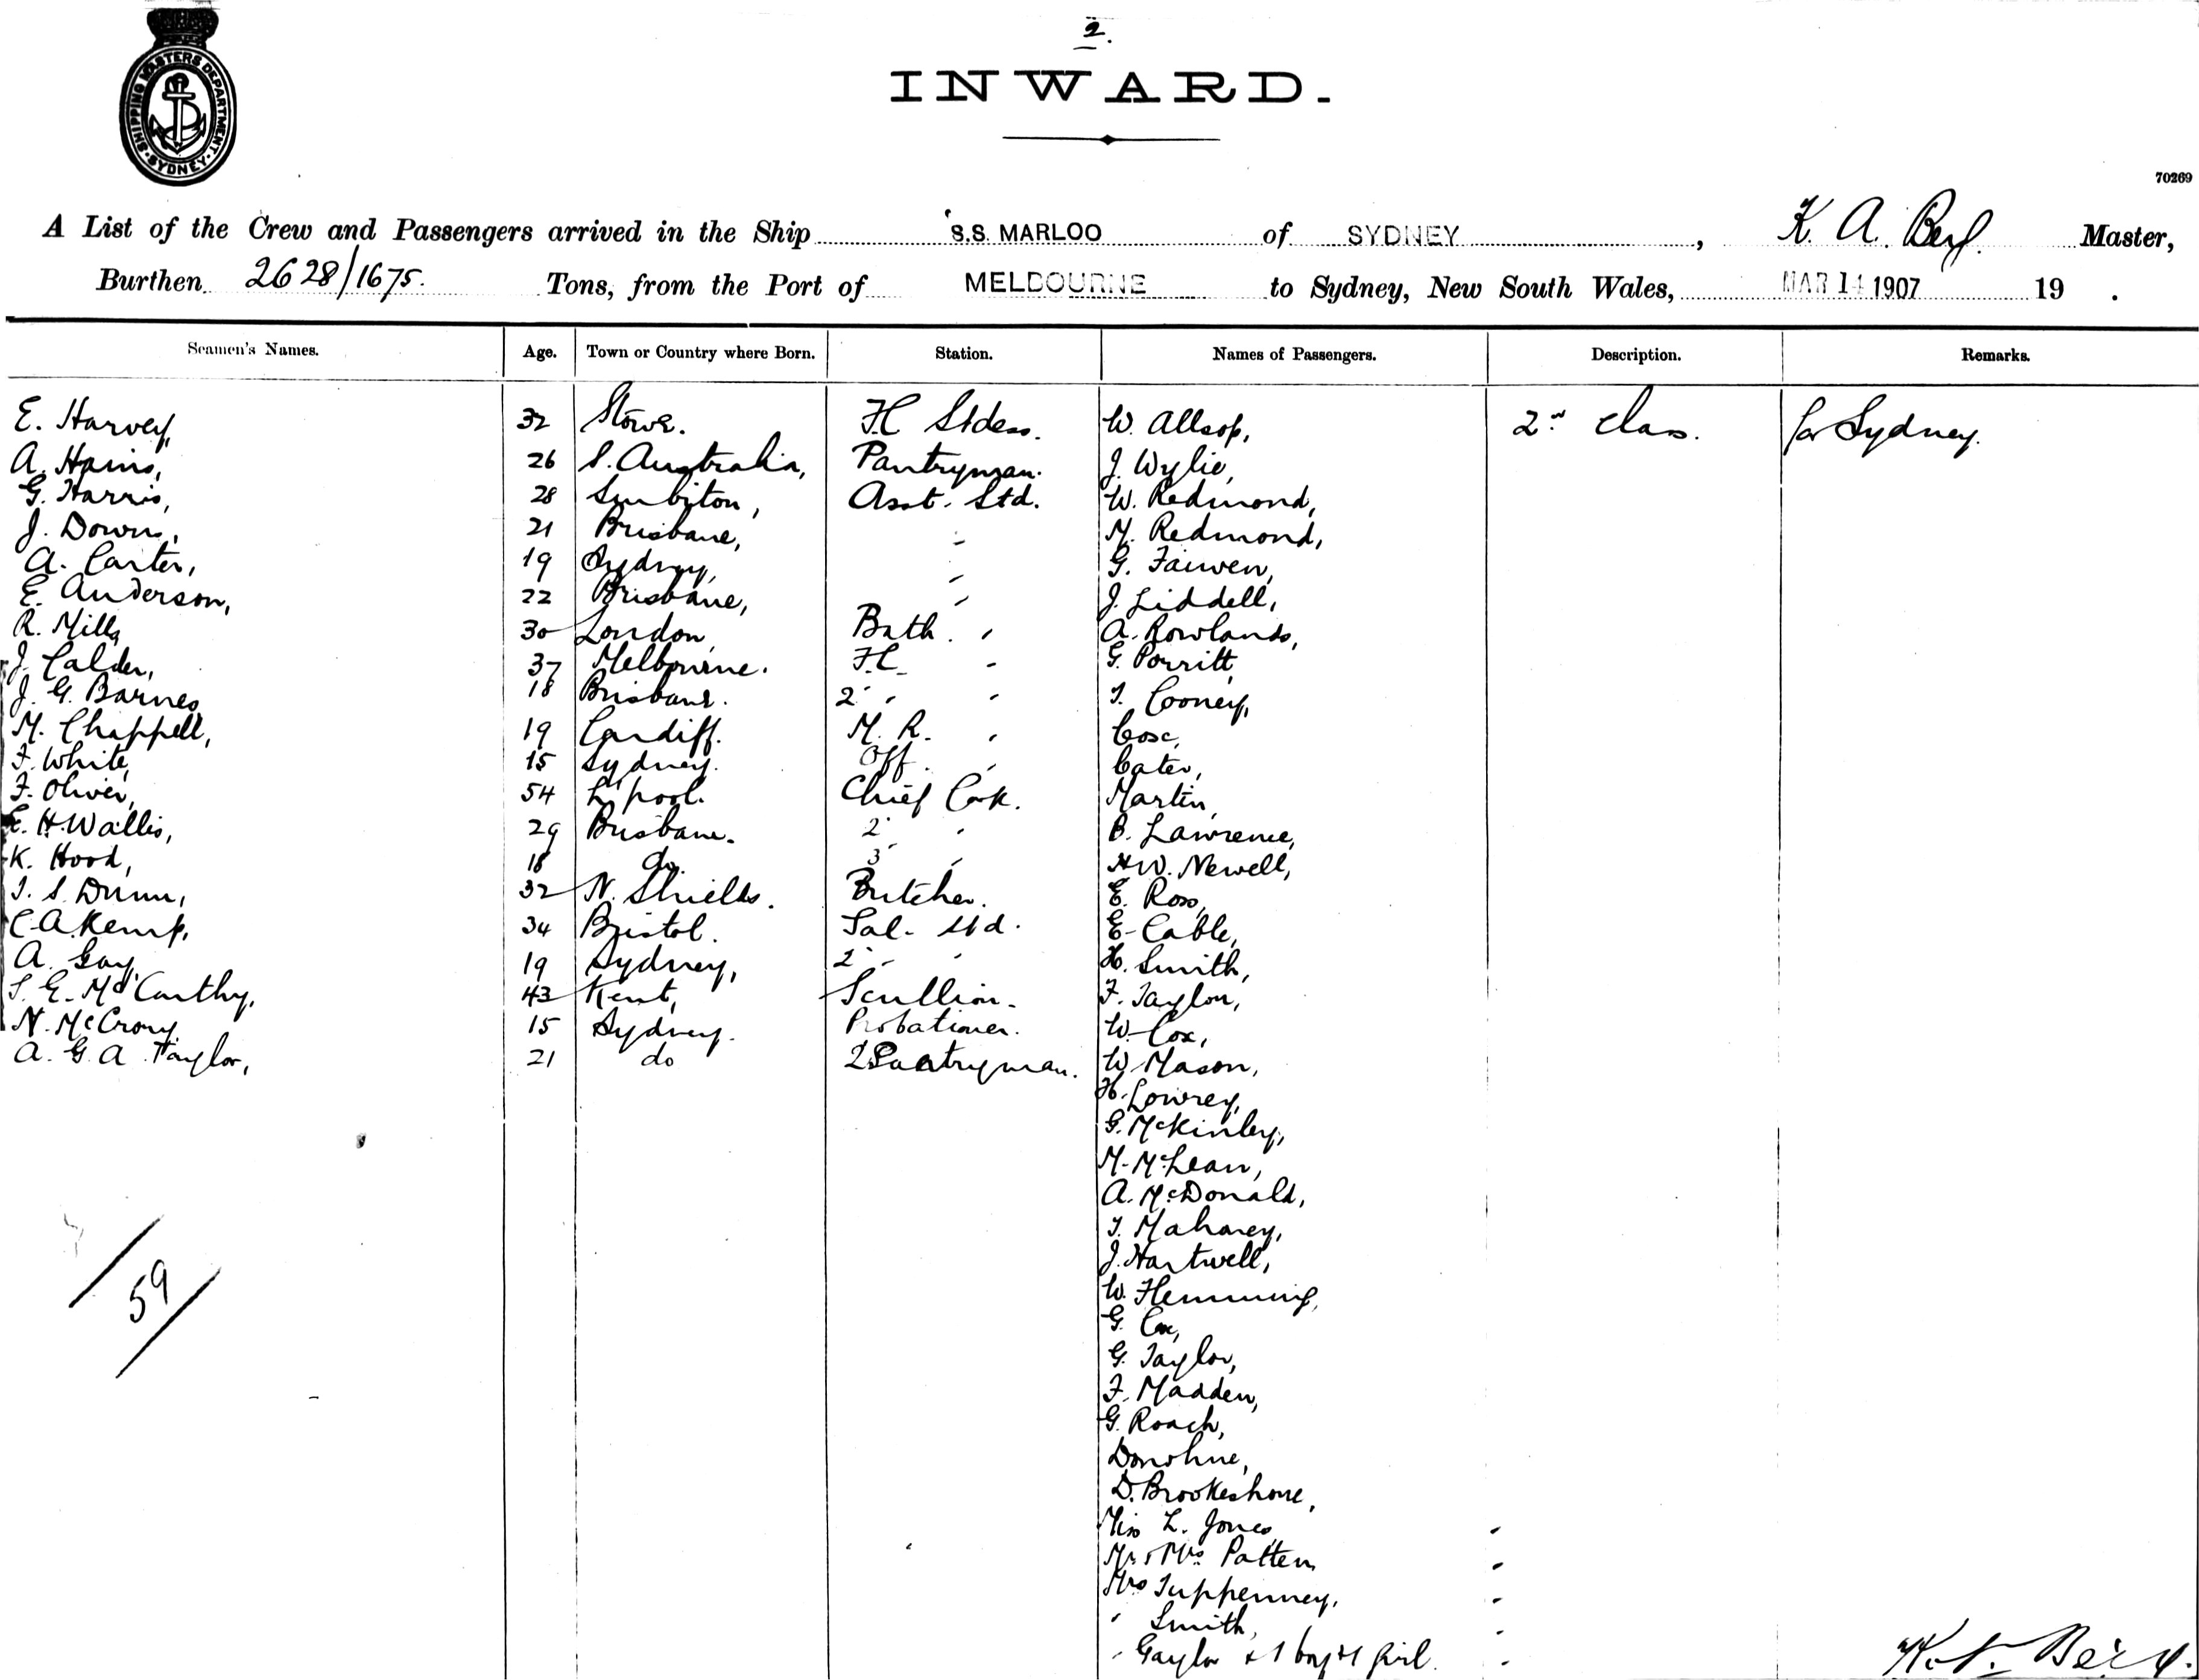 2.
SHIPPING MASTERS DEPARTMENT. SYDNEY.
INWARD.
70269
A List of the Crew and Passengers arrived in the Ship S.S. MARLOO of SYDNEY, K. A. Master,
Burthen 2628/1675. Tons, from the Port of MELBOURNE to Sydney, New South Wales, MAR 14 1907 19 .
Seamen's Names. Age. Town or Country where Born. Station. Names of Passengers. Description. Remarks.
E. Harvey, 32 Stowe. F.C Stdess. W. Allsop, 2nd Class. for Sydney.
A. Hains, 26 S. Australia, Pantryman. J. Wylie,
G. Harris, 28 Surbiton, Asst. Std. W. Redmond,
J. Downs, 21 Brisbane, " M. Redmond,
A. Carter, 19 Sydney, " G.
E. Anderson, 22 Brisbane, " J. Liddell,
R. Mills, 30 London, Bath. " A. Rowlands,
J. Calder, 37 Melbourne. F.C " G. Porritt,
J. G. Barnes, 18 Brisbane. 2" " T. Cooney,
M. Chappell, 19 Cardiff. M. R. " Cosc,
F. White, 15 Sydney. Off. " Cater,
F. Oliver, 54 L'pool. Chief Cook. Martin,
E. H. Wallis, 29 Brisbane. 2" " B. Lawrence,
K. Hood, 18 do. 3" " H W. Newell,
T. S. Dunn, 32 N. Shields. Butcher. E. Ross,
C. A. Kemp, 34 Bristol. Sal. Std. E. Cable,
A. Gay, 19 Sydney, 2" " H. Smith,
S. E. McCarthy, 43 Kent, Scullion. F. Taylor,
N. McCrory, 15 Sydney. Probationer. W. Cox,
A. G. A. Taylor, 21 do 2 Pantryman. W. Mason,
H. Lowrey,
G. McKinley,
M. McLean,
A. McDonald,
T. Mahaney,
J. Hartwell,
W. Flemming,
G. Cox,
59
G. Taylor,
F. Madden,
G. Roach,
Donohue,
D. Brookeshore,
Miss L. Jones, "
Mr & Mrs Patten, "
Mrs Tuppenney, "
" Smith, "
" Gaylor & 1 boy & 1 girl. "